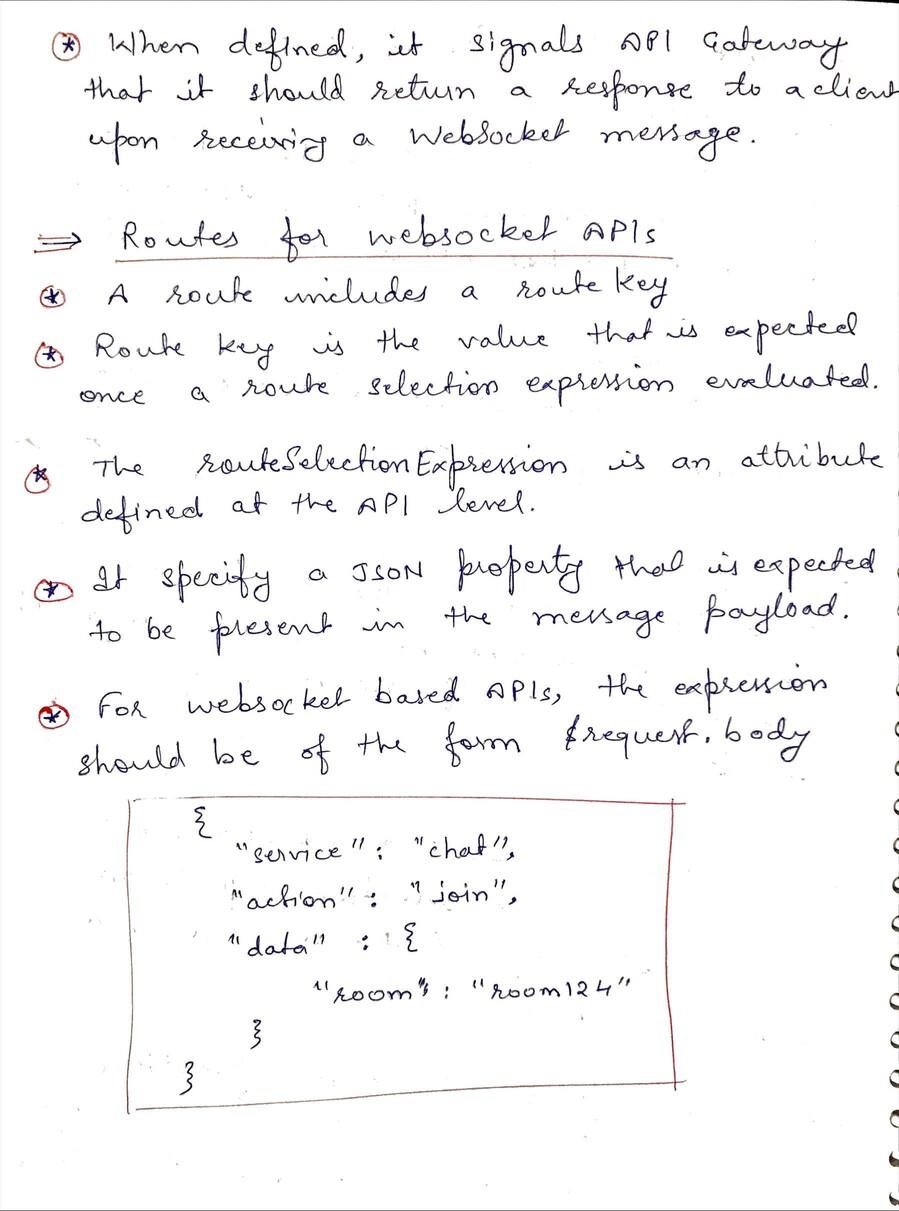 * When defined, it signals API Gateway
that it should return a response to a client
upon receiving a WebSocket message.
⇒ Routes for websocket APIs
* A route includes a route key
* Route key is the value that is expected
once a route selection expression evaluated.
* The routeSelectionExpression is an attribute
defined at the API level.
* It specify a JSON property that is expected
to be present in the message payload.
* For websocket based APIs, the expression
should be of the form $request.body
{
"service" : "chat",
"action" : "join",
"data" : {
"room" : "room124"
}
}